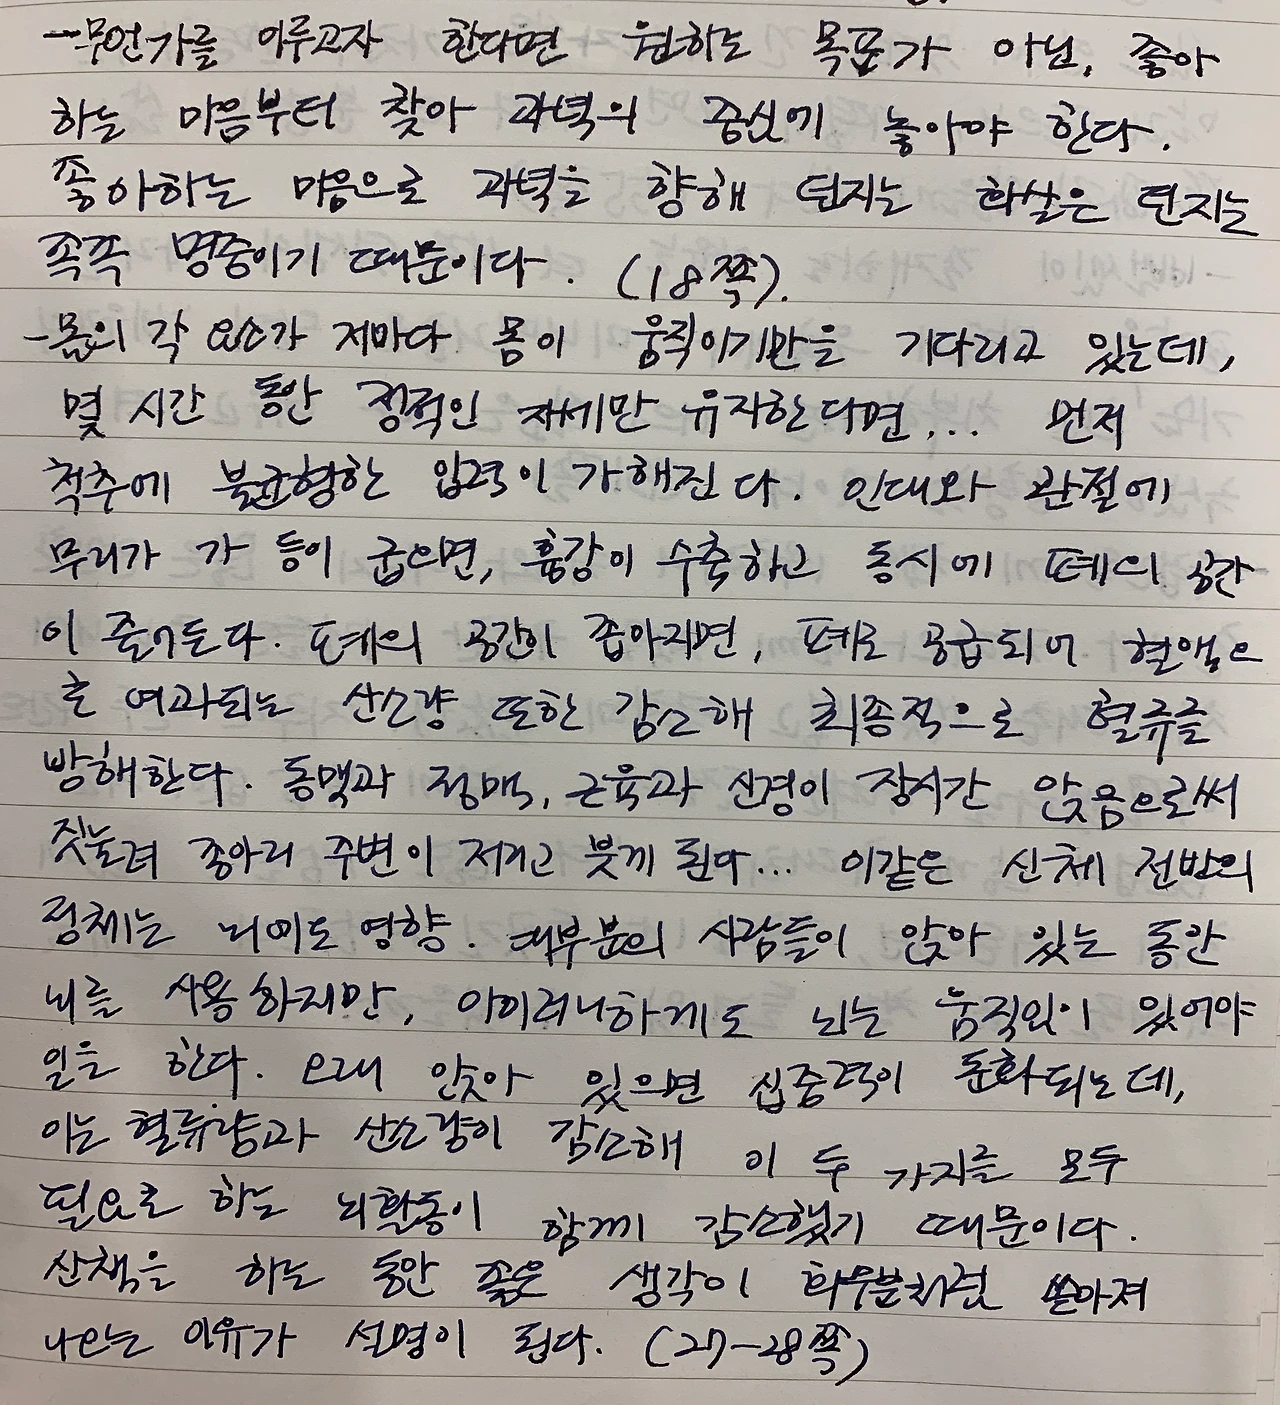 -무언가를 이루고자 한다면 원하는 목표가 아닌, 좋아
하는 마음부터 찾아 과녁의 중심에 놓아야 한다.
좋아하는 마음으로 과녁을 향해 던지는 화살은 던지는
족족 명중이기 때문이다. (18쪽).
-몸의 각 요소가 저마다 몸이 움직이기만을 기다리고 있는데,
몇 시간 동안 정적인 자세만 유지한다면... 먼저
척추에 불균형한 압력이 가해진다. 인대와 관절에
무리가 가 등이 굽으면, 흉강이 수축하고 동시에 폐의 공간
이 줄어든다. 폐의 공간이 좁아지면, 폐로 공급되어 혈액으
로 여과되는 산소량 또한 감소해 최종적으로 혈류를
방해한다. 동맥과 정맥, 근육과 신경이 장시간 앉음으로써
짓눌려 종아리 주변이 저리고 붓게 된다... 이같은 신체 전반의
정체는 뇌에도 영향. 대부분의 사람들이 앉아 있는 동안
뇌를 사용하지만, 아이러니하게도 뇌는 움직임이 있어야
일을 한다. 오래 앉아 있으면 집중력이 둔화되는데,
이는 혈류량과 산소량이 감소해 이 두 가지를 모두
필요로 하는 뇌활동이 함께 감소했기 때문이다.
산책을 하는 동안 좋은 생각이 화수분처럼 쏟아져
나오는 이유가 설명이 된다. (27-28쪽)